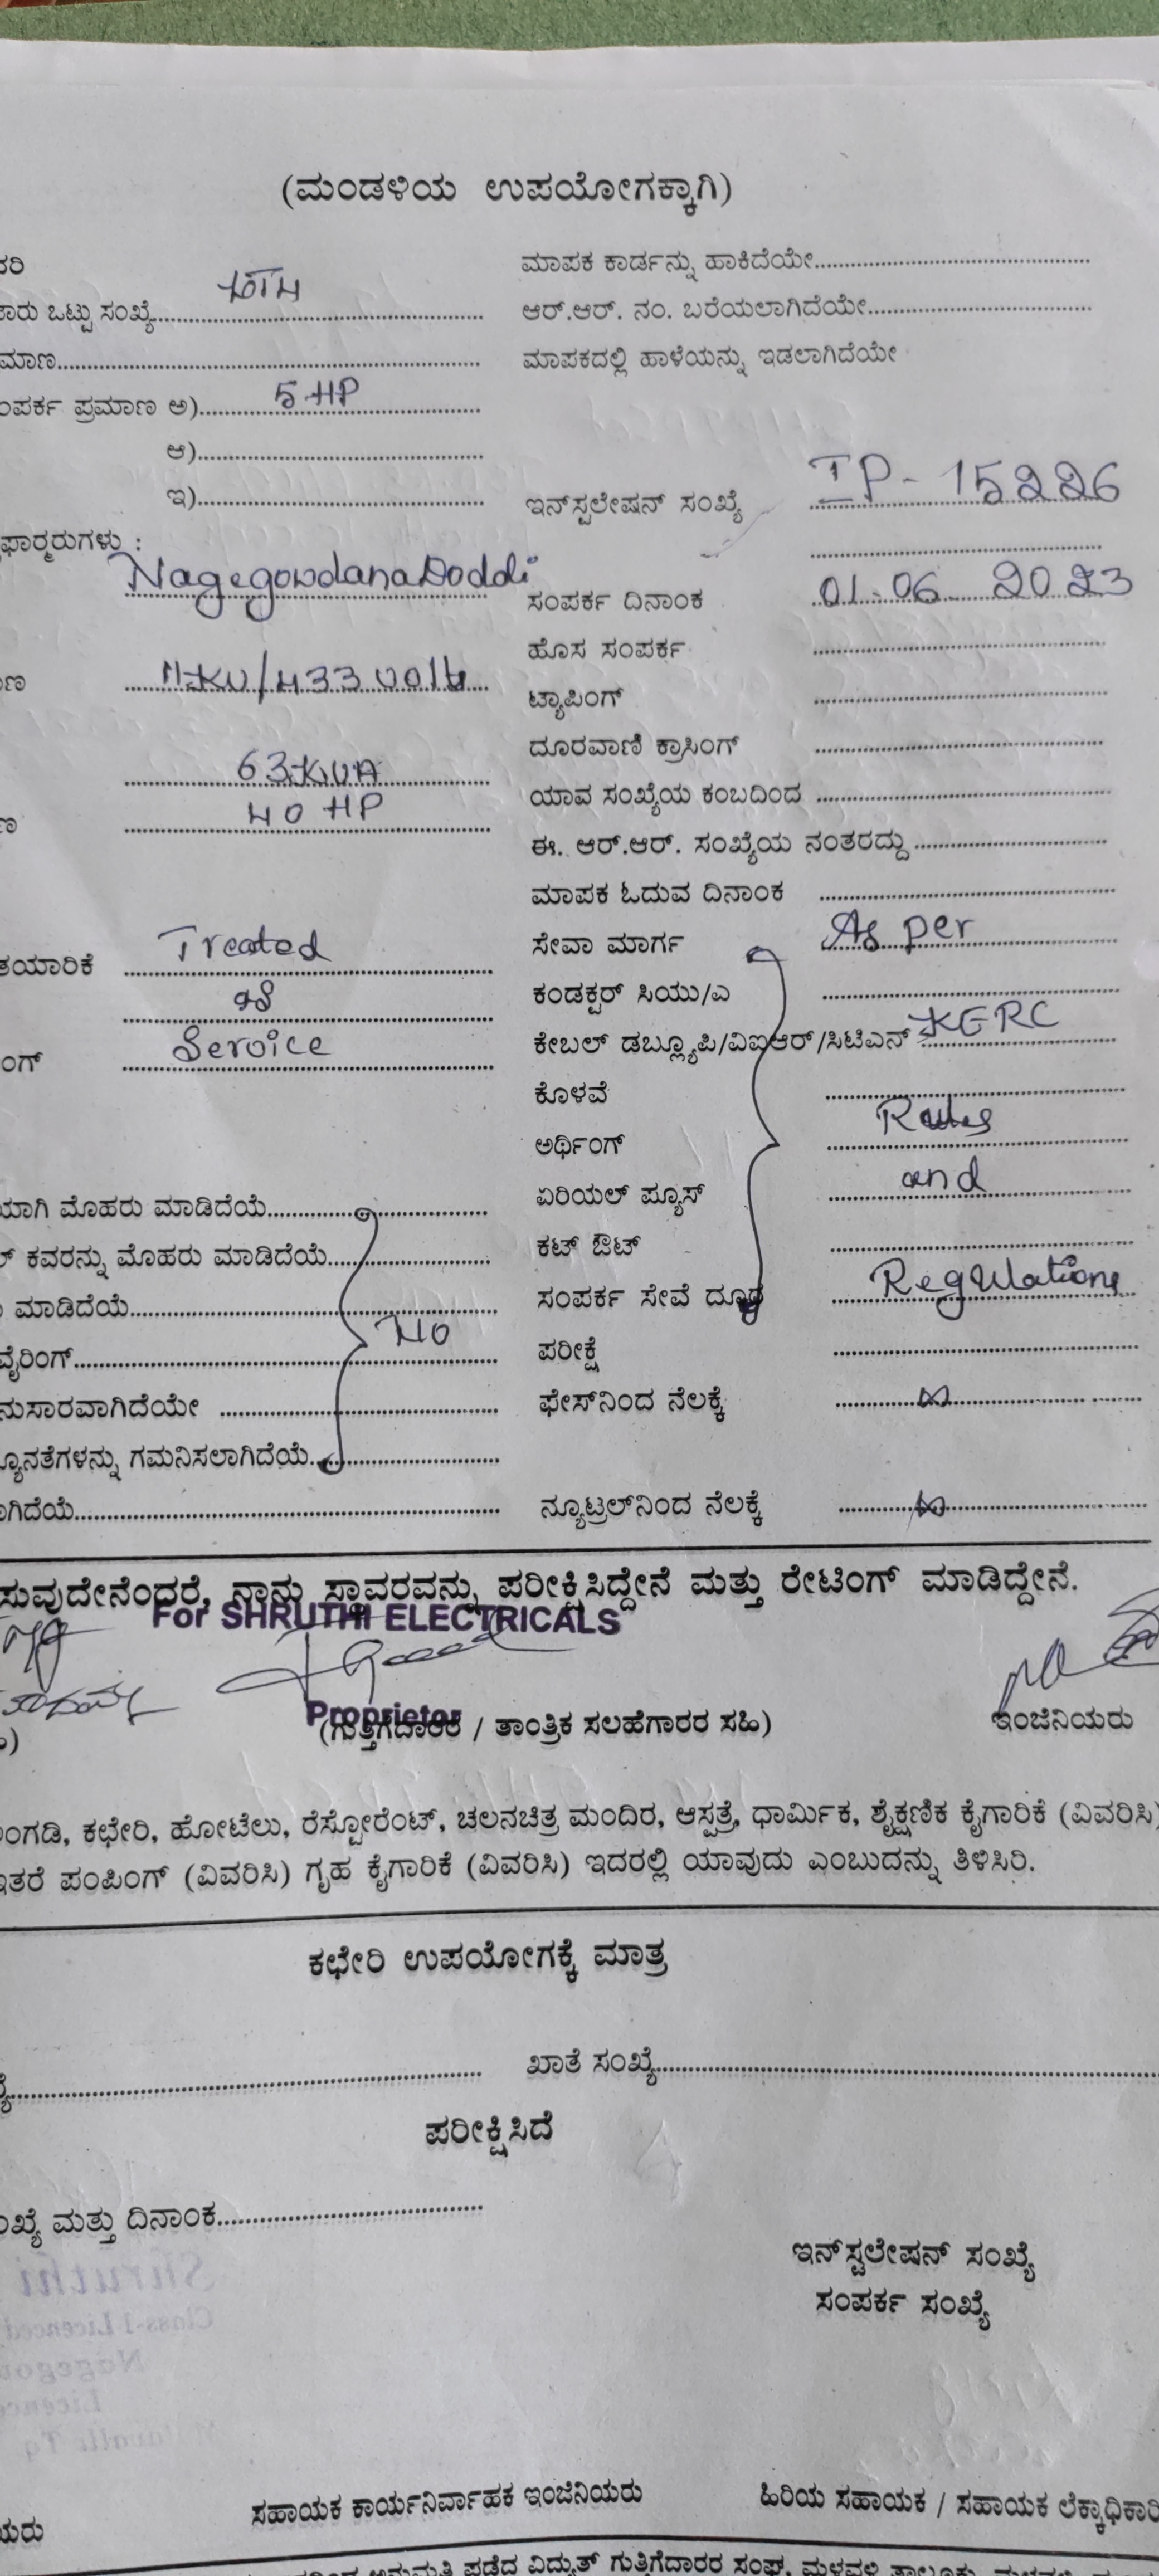 (ಮಂಡಳಿಯ ಉಪಯೋಗಕ್ಕಾಗಿ)
ಮಾಪಕ ಕಾರ್ಡನ್ನು ಹಾಕಿದೆಯೇ
ಒಟ್ಟು ಸಂಖ್ಯೆ ಆರ್.ಆರ್. ನಂ. ಬರೆಯಲಾಗಿದೆಯೇ
ಮಾಪಕದಲ್ಲಿ ಹಾಳೆಯನ್ನು ಇಡಲಾಗಿದೆಯೇ
ಪ್ರಮಾಣ ಅ) 5 HP
ಆ)
ಇ) ಇನ್‌ಸ್ಟಲೇಷನ್ ಸಂಖ್ಯೆ IP-15226
NagegowdanaDoddi ಸಂಪರ್ಕ ದಿನಾಂಕ 01-06-2023
ಹೊಸ ಸಂಪರ್ಕ
11-KV/433 Volts ಟ್ಯಾಪಿಂಗ್
ದೂರವಾಣಿ ಕ್ರಾಸಿಂಗ್
63-KVA ಯಾವ ಸಂಖ್ಯೆಯ ಕಂಬದಿಂದ
40 HP ಈ. ಆರ್.ಆರ್. ಸಂಖ್ಯೆಯ ನಂತರದ್ದು
ಮಾಪಕ ಓದುವ ದಿನಾಂಕ
ತಯಾರಿಕೆ Treated ಸೇವಾ ಮಾರ್ಗ As per
as ಕಂಡಕ್ಟರ್ ಸಿಯು/ಎ
Service ಕೇಬಲ್ ಡಬ್ಲ್ಯೂಪಿ/ವಿಐಆರ್/ಸಿಟಿಎನ್ KERC
ಕೊಳವೆ
ಅರ್ಥಿಂಗ್ Rules
ಮೊಹರು ಮಾಡಿದೆಯೆ ಏರಿಯಲ್ ಪ್ಯೂಸ್ and
ಕವರನ್ನು ಮೊಹರು ಮಾಡಿದೆಯೆ ಕಟ್ ಔಟ್
ಮಾಡಿದೆಯೆ ಸಂಪರ್ಕ ಸೇವೆ ದೂರ Regulations
ವೈರಿಂಗ್ NO ಪರೀಕ್ಷೆ
ಫೇಸ್‌ನಿಂದ ನೆಲಕ್ಕೆ ∞
ಗಮನಿಸಲಾಗಿದೆಯೆ
ನ್ಯೂಟ್ರಲ್‌ನಿಂದ ನೆಲಕ್ಕೆ ∞
ನಾನು ಸ್ಥಾವರವನ್ನು ಪರೀಕ್ಷಿಸಿದ್ದೇನೆ ಮತ್ತು ರೇಟಿಂಗ್ ಮಾಡಿದ್ದೇನೆ.
For SHRUTHI ELECTRICALS
Proprietor
(ಗುತ್ತಿಗೆದಾರರ / ತಾಂತ್ರಿಕ ಸಲಹೆಗಾರರ ಸಹಿ) ಇಂಜಿನಿಯರು
ಕಛೇರಿ, ಹೋಟೆಲು, ರೆಸ್ಟೋರೆಂಟ್, ಚಲನಚಿತ್ರ ಮಂದಿರ, ಆಸ್ಪತ್ರೆ, ಧಾರ್ಮಿಕ, ಶೈಕ್ಷಣಿಕ ಕೈಗಾರಿಕೆ (ವಿವರಿಸಿ)
ಇತರೆ ಪಂಪಿಂಗ್ (ವಿವರಿಸಿ) ಗೃಹ ಕೈಗಾರಿಕೆ (ವಿವರಿಸಿ) ಇದರಲ್ಲಿ ಯಾವುದು ಎಂಬುದನ್ನು ತಿಳಿಸಿರಿ.
ಕಛೇರಿ ಉಪಯೋಗಕ್ಕೆ ಮಾತ್ರ
ಖಾತೆ ಸಂಖ್ಯೆ
ಪರೀಕ್ಷಿಸಿದೆ
ಮತ್ತು ದಿನಾಂಕ
ಇನ್‌ಸ್ಟಲೇಷನ್ ಸಂಖ್ಯೆ
ಸಂಪರ್ಕ ಸಂಖ್ಯೆ
ಸಹಾಯಕ ಕಾರ್ಯನಿರ್ವಾಹಕ ಇಂಜಿನಿಯರು ಹಿರಿಯ ಸಹಾಯಕ / ಸಹಾಯಕ ಲೆಕ್ಕಾಧಿಕಾರಿ
ಅನುಮತಿ ಪಡೆದ ವಿದ್ಯುತ್ ಗುತ್ತಿಗೆದಾರರ ಸಂಘ, ಮಳವಳ್ಳಿ ತಾಲ್ಲೂಕು